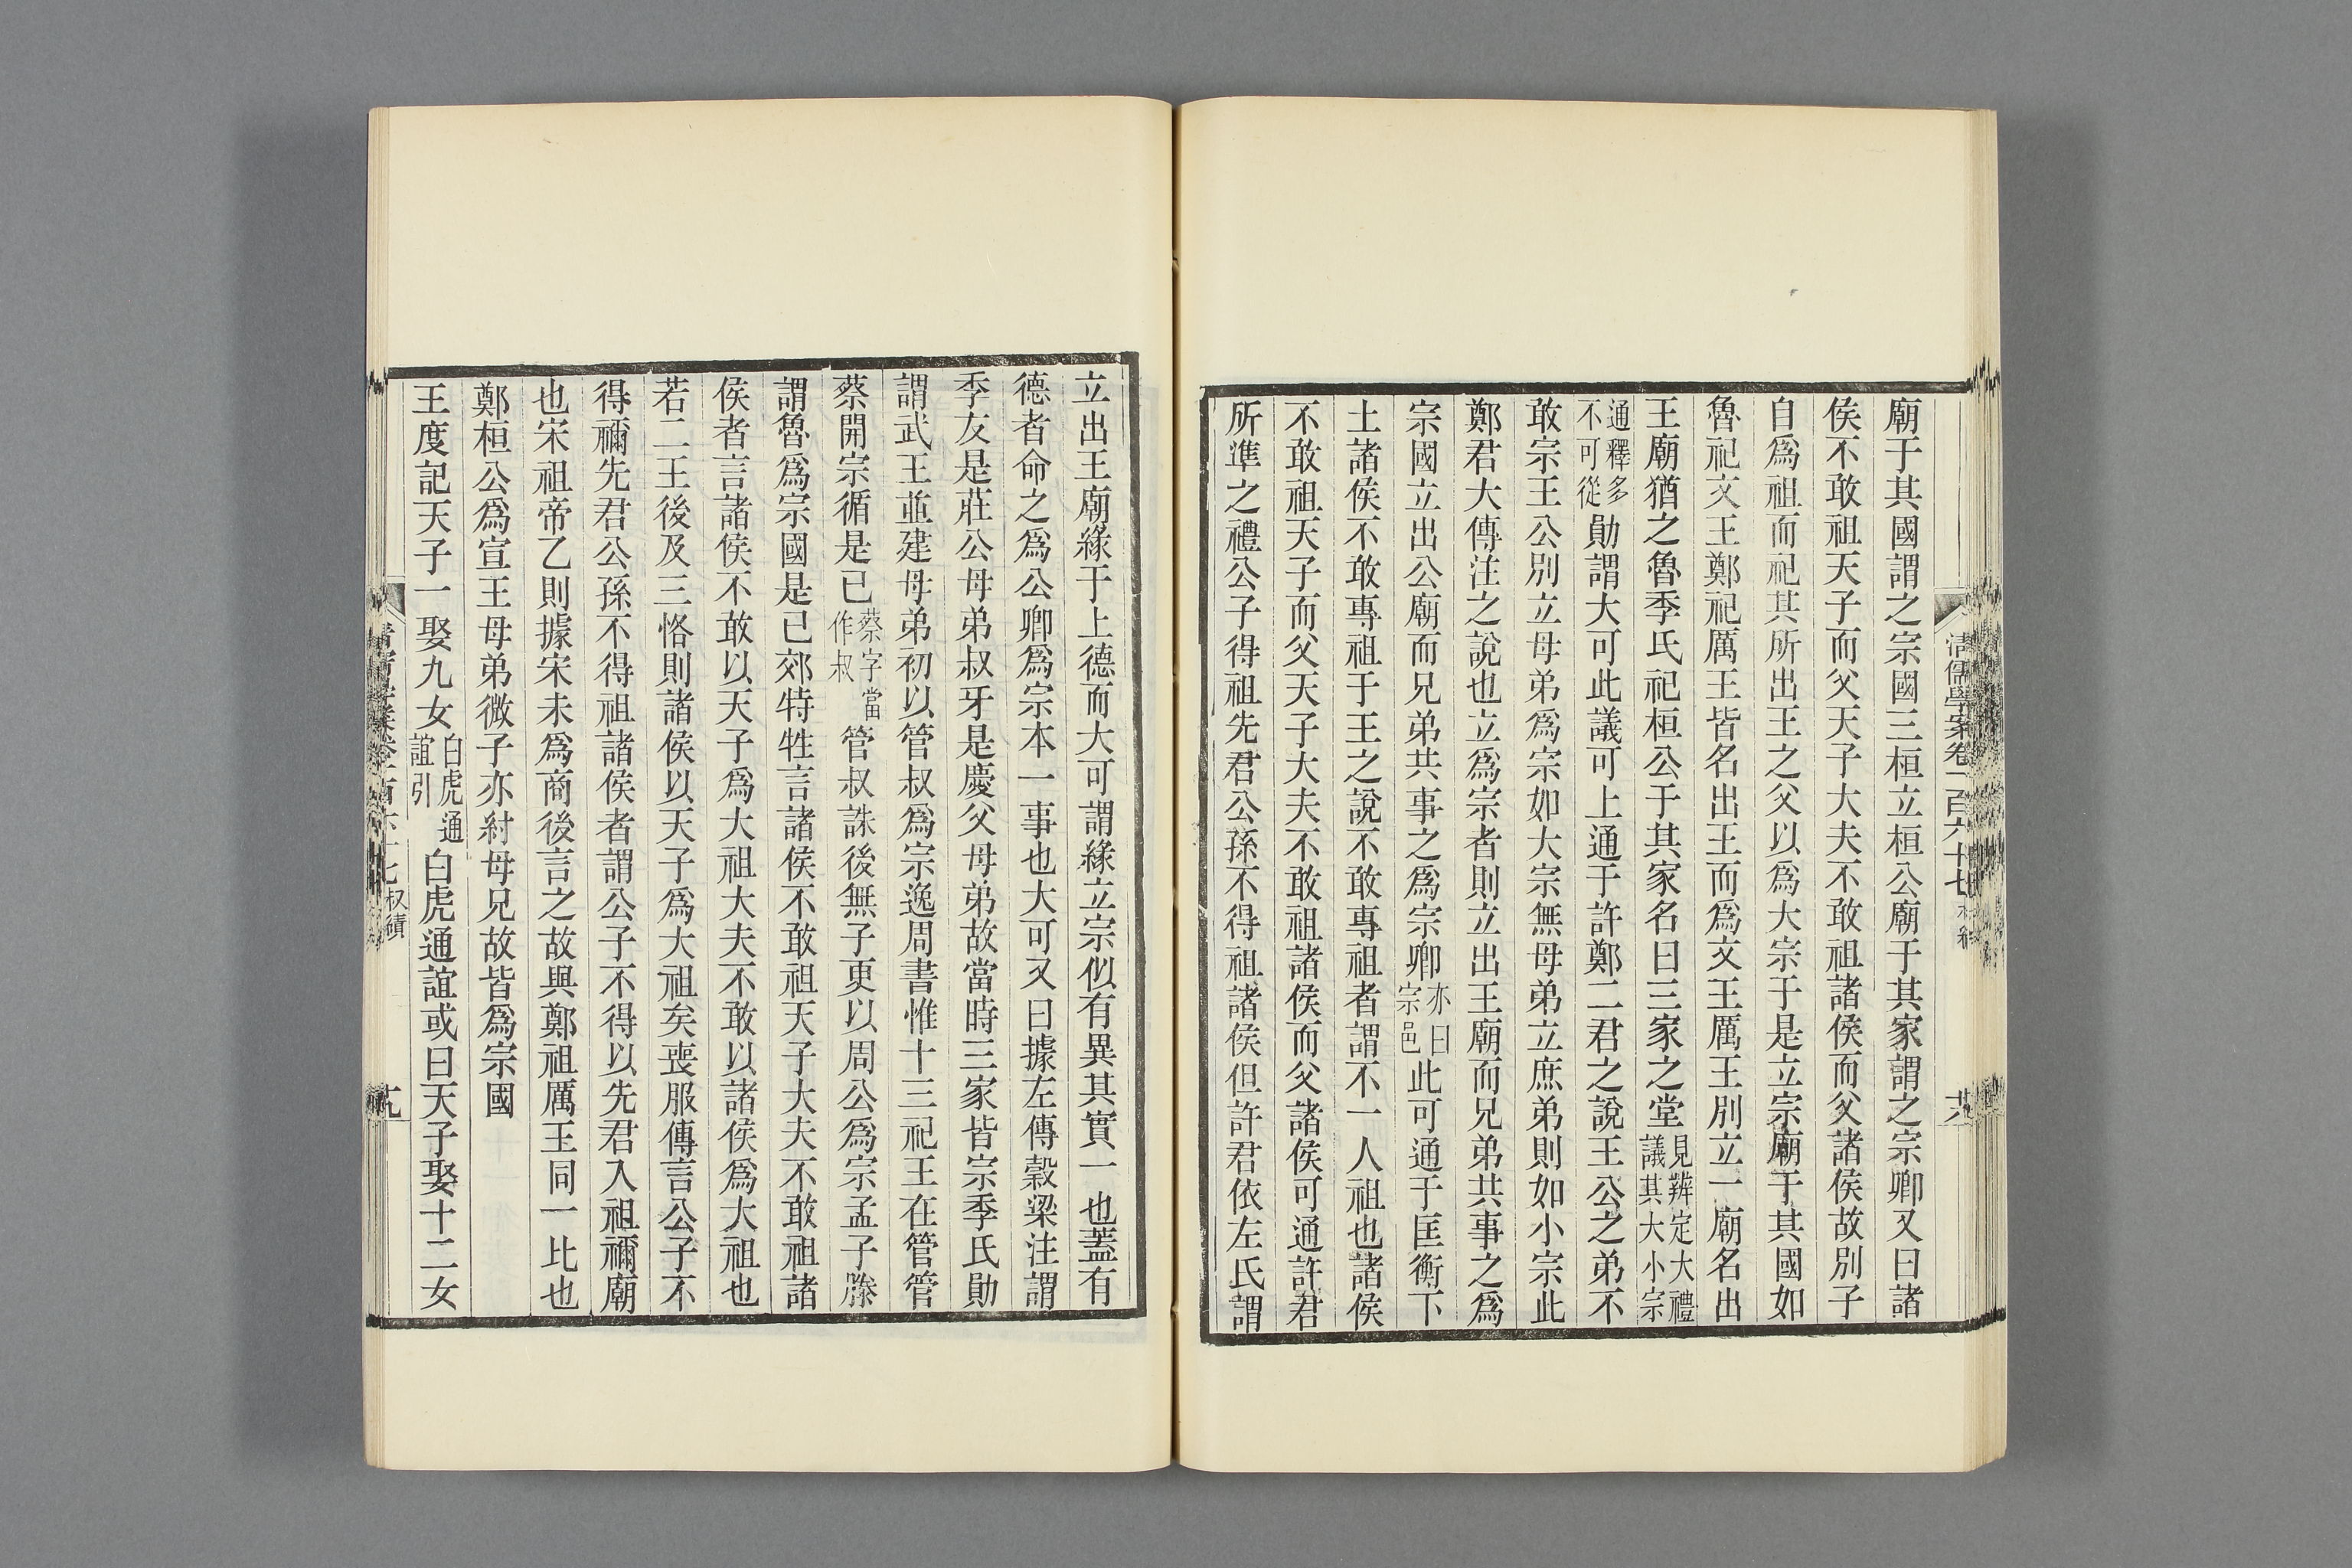 清儒學案卷一百六十七
廟于其國謂之宗國三桓立桓公廟于其家謂之宗卿又曰諸
侯不敢祖天子而父天子大夫不敢祖諸侯而父諸侯故別子
自爲祖而祀其所出王之父以爲大宗于是立宗廟于其國如
魯祀文王鄭祀厲王皆名出王而爲文王厲王別立一廟名出
王廟猶之魯季氏祀桓公于其家名曰三家之堂見辨定大禮議其大小宗
通釋多不可從勛謂大可此議可上通于許鄭二君之說王公之弟不
敢宗王公別立母弟爲宗如大宗無母弟立庶弟則如小宗此
鄭君大傳注之說也立爲宗者則立出王廟而兄弟共事之爲
宗國立出公廟而兄弟共事之爲宗卿亦曰宗邑此可通于匡衡下
土諸侯不敢專祖于王之說不敢專祖者謂不一人祖也諸侯
不敢祖天子而父天子大夫不敢祖諸侯而父諸侯可通許君
所準之禮公子得祖先君公孫不得祖諸侯但許君依左氏謂
立出王廟緣于上德而大可謂緣立宗似有異其實一也蓋有
德者命之爲公卿爲宗本一事也大可又曰據左傳穀梁注謂
季友是莊公母弟叔牙是慶父母弟故當時三家皆宗季氏勛
謂武王並建母弟初以管叔爲宗逸周書惟十三祀王在管管
蔡開宗循是已蔡字當作叔管叔誅後無子更以周公爲宗孟子滕
謂魯爲宗國是已郊特牲言諸侯不敢祖天子大夫不敢祖諸
侯者言諸侯不敢以天子爲大祖大夫不敢以諸侯爲大祖也
若二王後及三恪則諸侯以天子爲大祖矣喪服傳言公子不
得禰先君公孫不得祖諸侯者謂公子不得以先君入祖禰廟
也宋祖帝乙則據宋未爲商後言之故與鄭祖厲王同一比也
鄭桓公爲宣王母弟微子亦紂母兄故皆爲宗國
王度記天子一娶九女白虎通誼引白虎通誼或曰天子娶十二女
叔績